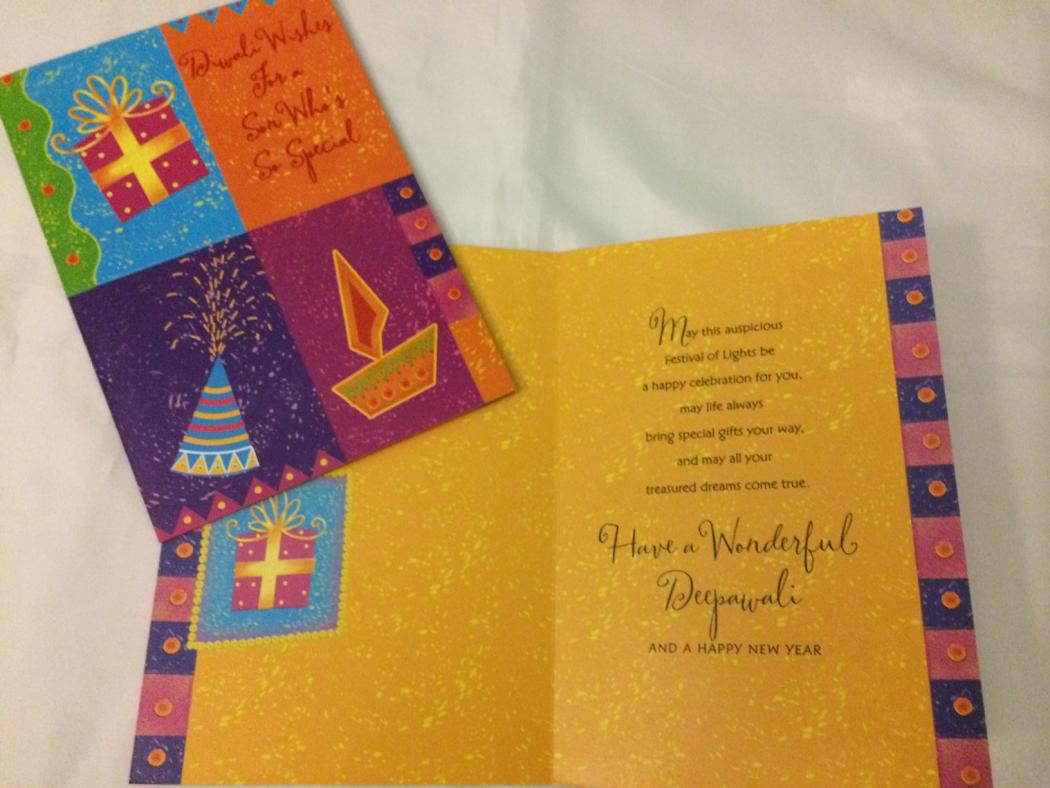 Diwali Wishes
For a
Son Who's
So Special
May this auspicious
Festival of Lights be
a happy celebration for you,
may life always
bring special gifts your way,
and may all your
treasured dreams come true.
Have a Wonderful
Deepawali
AND A HAPPY NEW YEAR